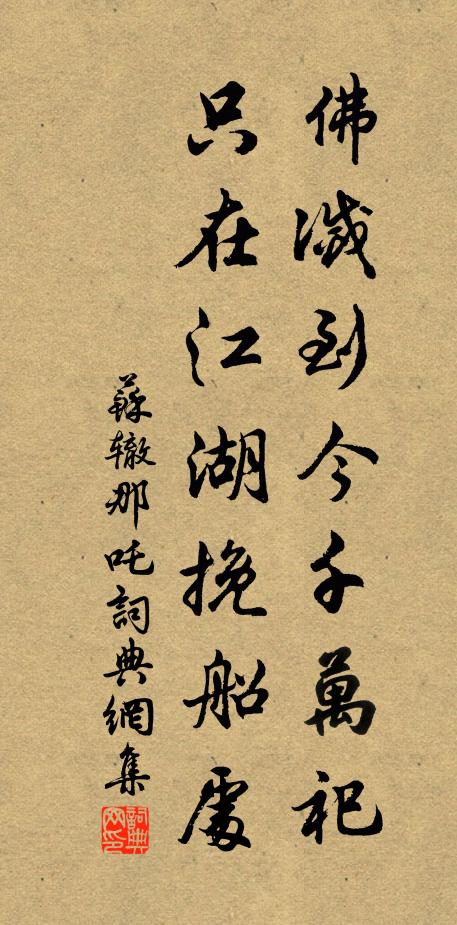 佛滅到今千萬祀
只在江湖挽船處
蘇辙那吒詞典網集
詞典網印